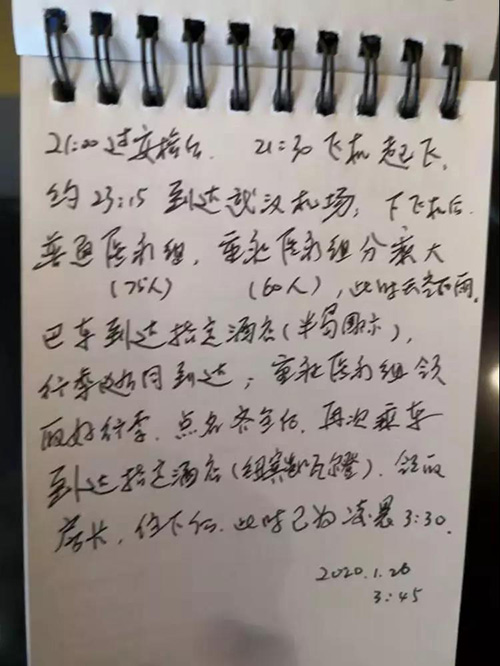 21:00过安检后. 21:30飞机起飞,
约23:15到达武汉机场, 下飞机后.
普通医疗组, 重症医疗组分乘大
(75人) (60人), 此时天空下雨.
巴车到达指定酒店(半岛国际),
行李随同到达, 重症医疗组领
取好行李. 点名齐全后. 再次乘车
到达指定酒店(纽宾凯瓦尔登). 领取
房卡, 住下后. 此时已为凌晨3:30.
2020.1.26
3:45